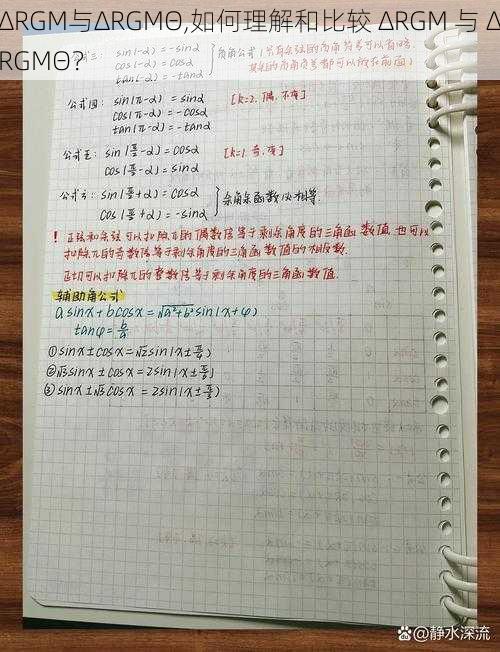 ΔRGM与ΔRGMΘ,如何理解和比较 ΔRGM 与 Δ
RGMΘ?
公式三: sin(-α) = -sinα
cos(-α) = cosα
tan(-α) = -tanα
负角公式
公式四: sin(π-α) = sinα [k=2, 偶, 不变]
cos(π-α) = -cosα
tan(π-α) = -tanα
公式五: sin(π/2-α) = cosα [k=1, 奇, 变]
cos(π/2-α) = sinα
公式六: sin(π/2+α) = cosα
cos(π/2+α) = -sinα
余角余函数必相等.
! 正弦和余弦可以扣除π的偶数倍等于剩余角度的三角函数值, 也可以
扣除π的奇数倍等于剩余角度的三角函数值的相反数.
正切可以扣除π的整数倍等于剩余角度的三角函数值.
辅助角公式
a sinx + b cosx = √a²+b² sin(x+φ)
tanφ = b/a
① sinx ± cosx = √2 sin(x ± π/4)
② √3 sinx ± cosx = 2sin(x ± π/6)
③ sinx ± √3 cosx = 2sin(x ± π/3)
@静水深流